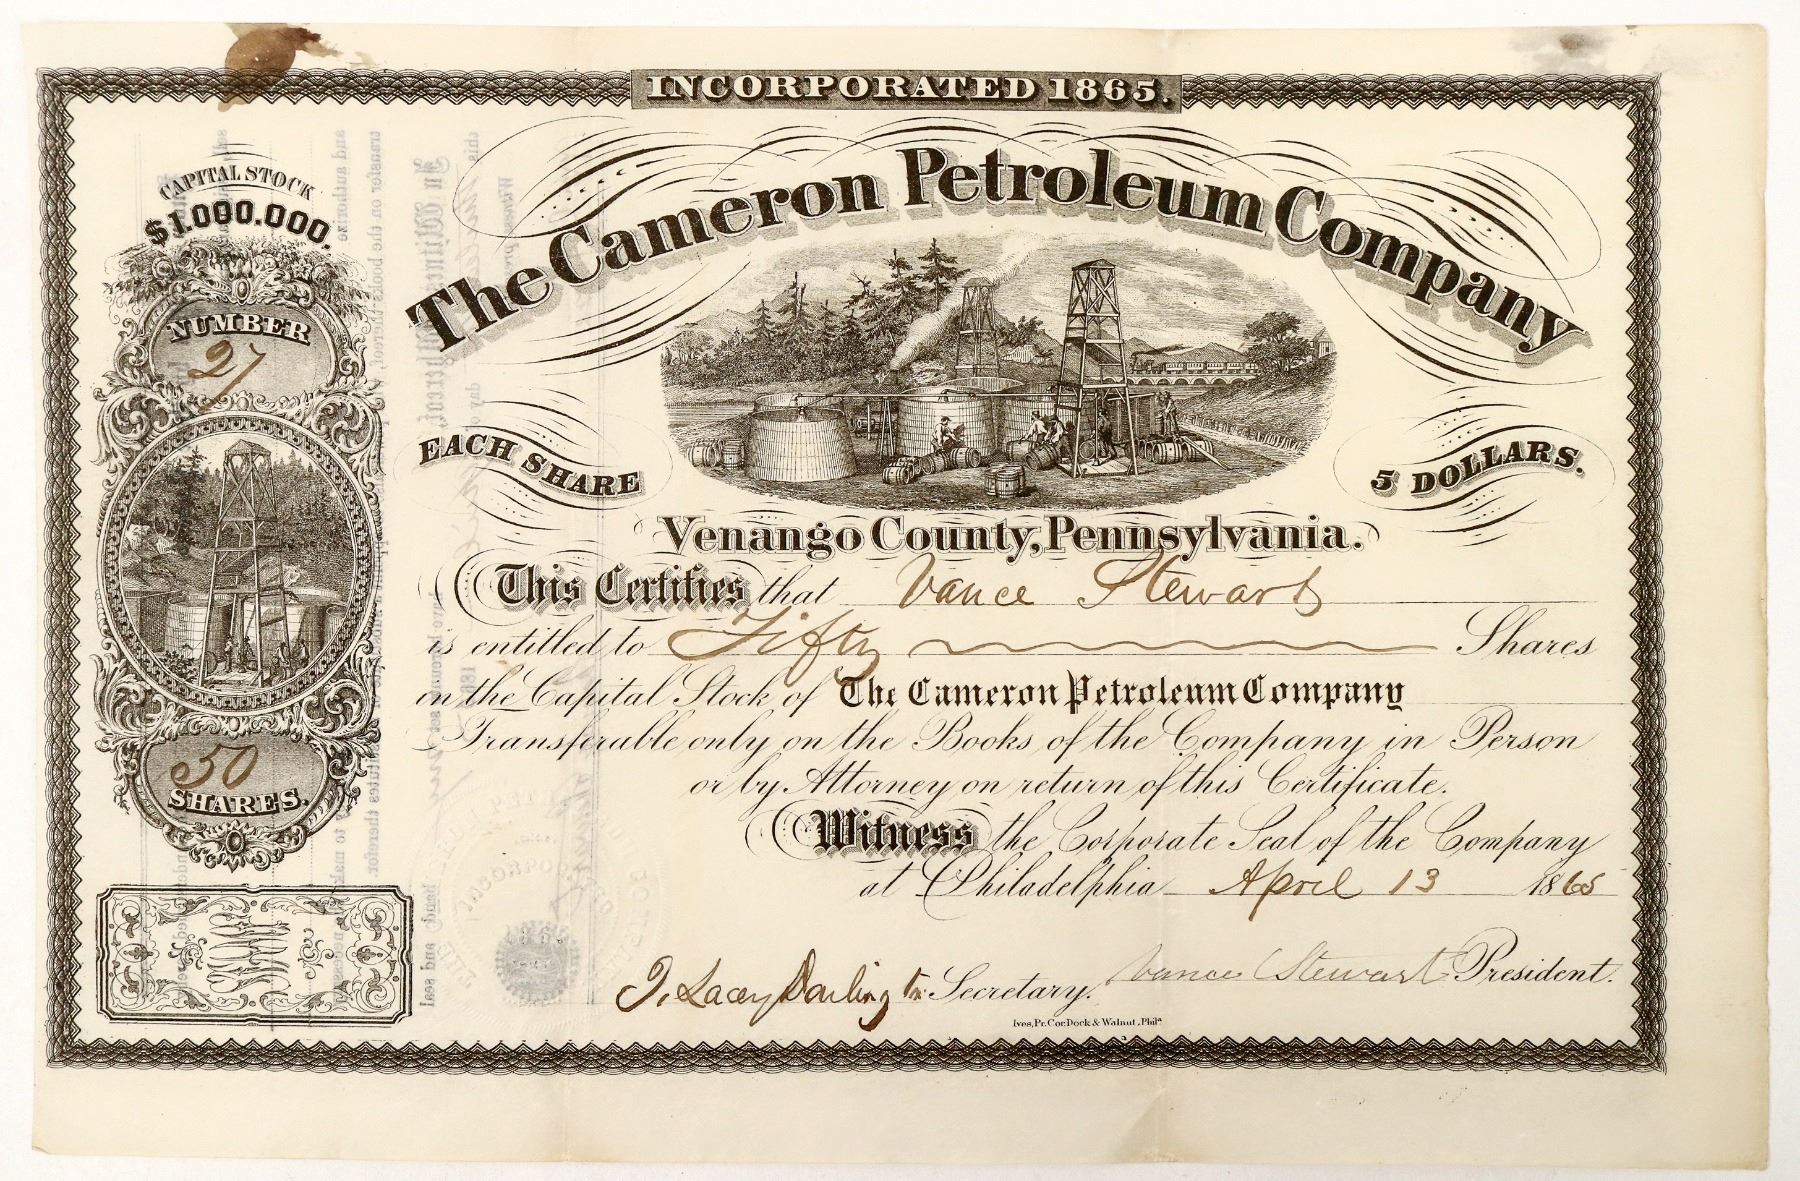 INCORPORATED 1865.
CAPITAL STOCK
$1.000.000.
The Cameron Petroleum Company
NUMBER
27
EACH SHARE
5 DOLLARS.
Venango County, Pennsylvania.
This Certifies that Vance Stewart
is entitled to Fifty Shares
in the Capital Stock of The Cameron Petroleum Company
Transferable only on the Books of the Company in Person
or by Attorney on return of this Certificate.
50
SHARES.
Witness the Corporate Seal of the Company
at Philadelphia April 13 1865
J. Lacey Darling Secretary. Vance Stewart President.
Ives, Pr. Cor. Dock & Walnut, Phila